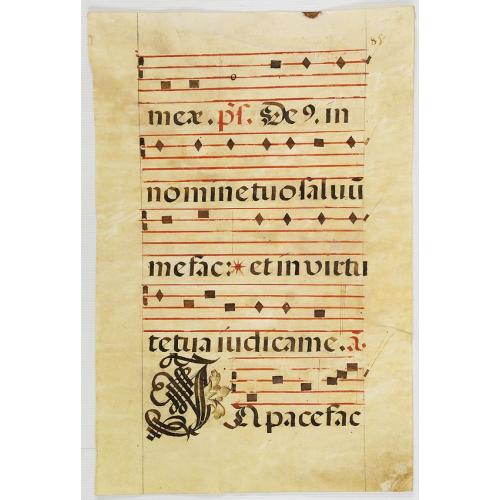 85
meæ. ps. De9. in
nomine tuo saluū
me fac: * et in virtu
te tua iudica me. a.
IN pace fac